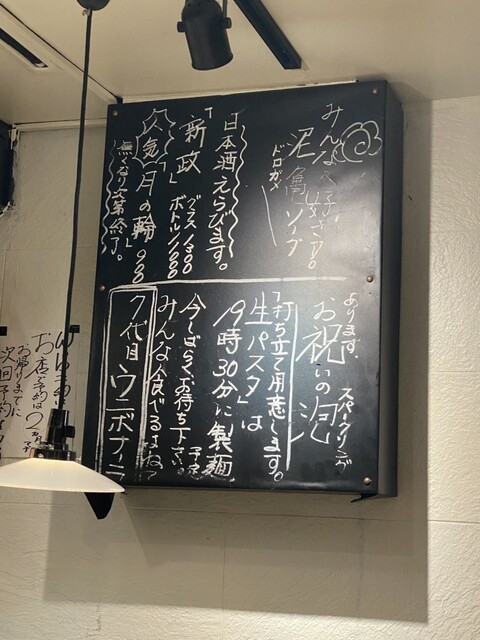 みんな大好きです。
泥亀にソーダ
ドロガメ
日本酒えらびます。
「新政」
グラス1300
ボトル11000
人気「月の輪」98
無くなり次第終了。
あります。
お祝いの泡
スパークリング
「打ち立て用意します。
生パスタ」は
19時30分に製麺
予定
今しばらくお待ち下さい。
みんな食べるよね?
7代目ウニボナーラ
お店予約は2ヶ月
お帰りまでに
次回予約